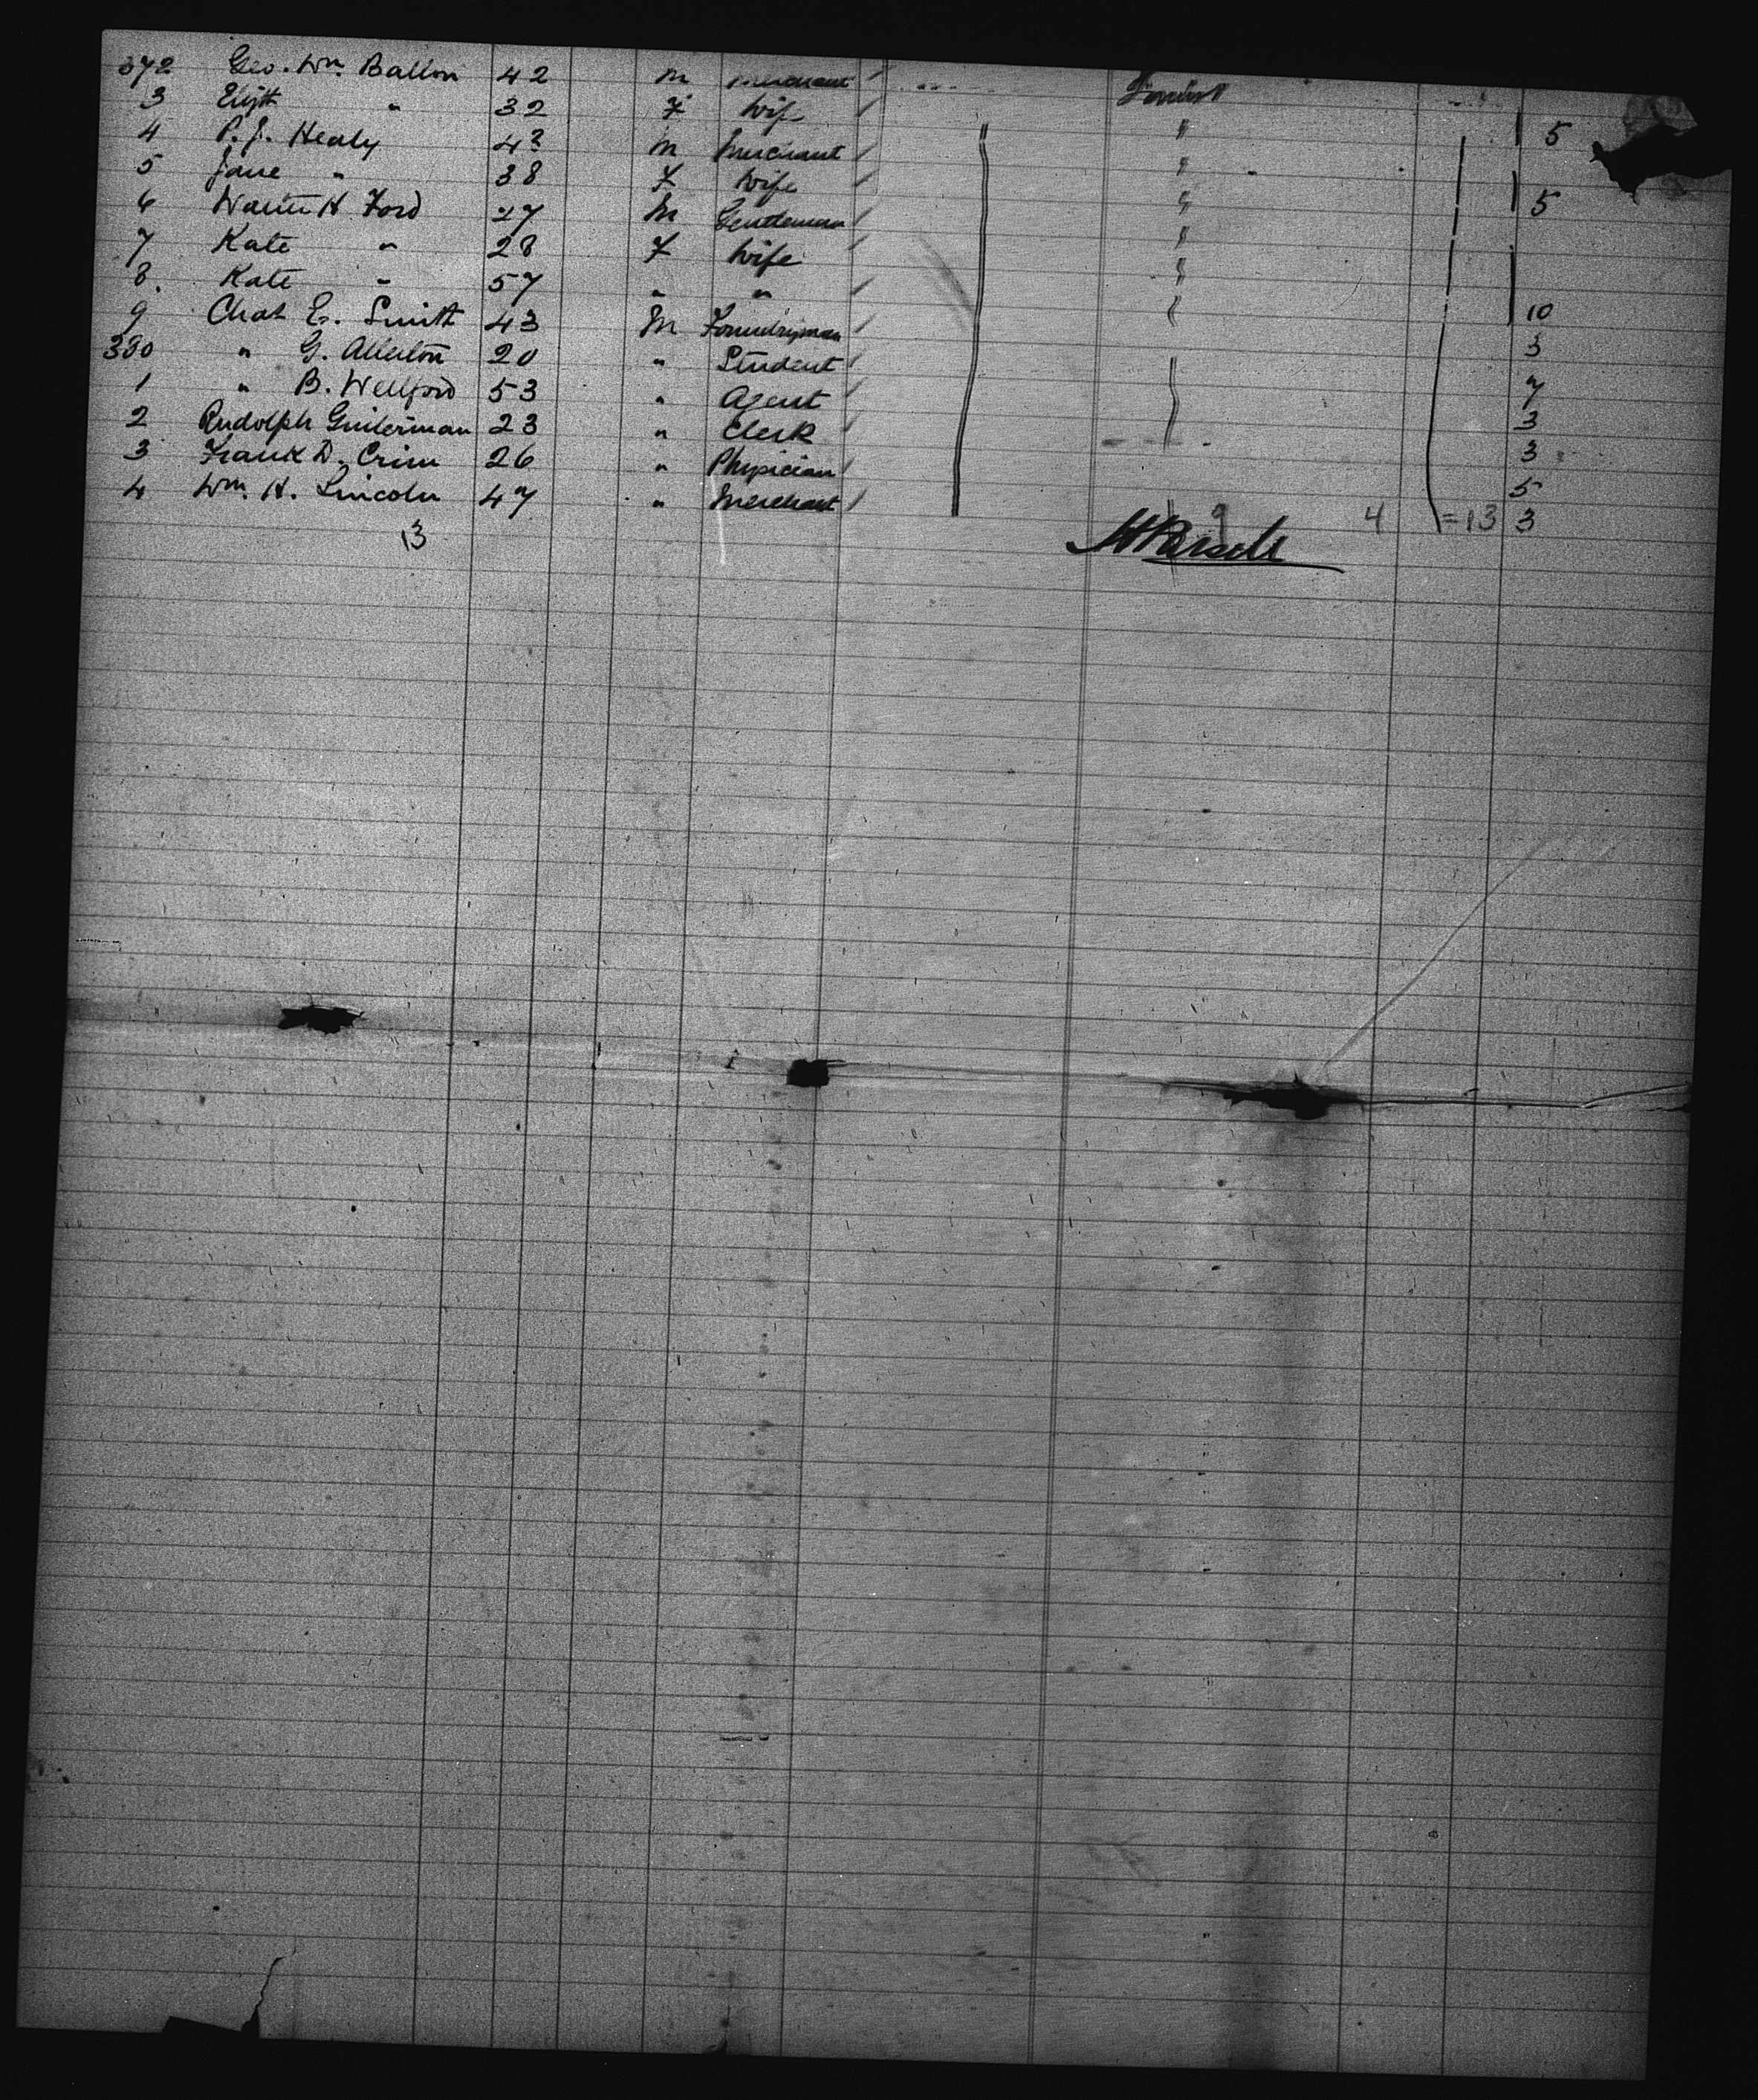 372 Geo. Wm. Ballou 42 M Merchant
3 Elizth " 32 F Wife " 5
4 P. J. Healy 42 M Merchant "
5 Jane " 38 F Wife " 5
6 H. Ford 27 M Gentleman "
7 Kate " 28 F Wife "
8. Kate " 57 " "
9 Chas E. Smith 43 M Foundryman 10
380 " G. Allerton 20 " Student 3
1 " B. Wellford 53 " Agent 7
2 Rudolph Guiterman 23 " Clerk 3
3 Frank D. Crim 26 " Physician 3
4 Wm. H. Lincoln 47 " Merchant 5
13 9 4 =13 3